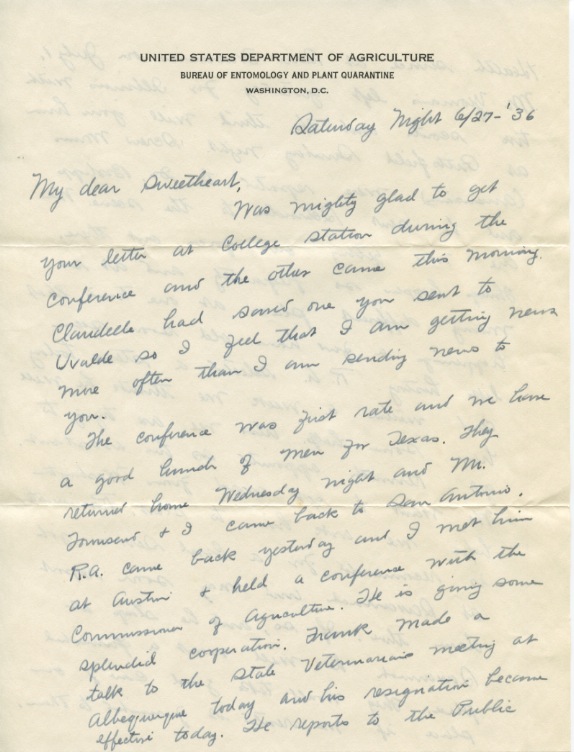 UNITED STATES DEPARTMENT OF AGRICULTURE
BUREAU OF ENTOMOLOGY AND PLANT QUARANTINE
WASHINGTON, D.C.
Saturday Night 6/27-'36
My dear Sweetheart,
Was mighty glad to get
your letter at College Station during the
conference and the other came this morning.
Claudelle had saved one you sent to
Uvalde so I feel that I am getting news
more often than I am sending news to
you.
The conference was first rate and we have
a good bunch of men for Texas. They
returned home Wednesday night and Mr.
Townsend & I came back to San Antonio.
R.A. came back yesterday and I met him
at Austin & held a conference with the
Commissioner of Agriculture. He is giving some
splendid corperation. Frank made a
talk to the State Veterinarians meeting at
Albequerque today and his resignation became
effective today. He reports to the Public